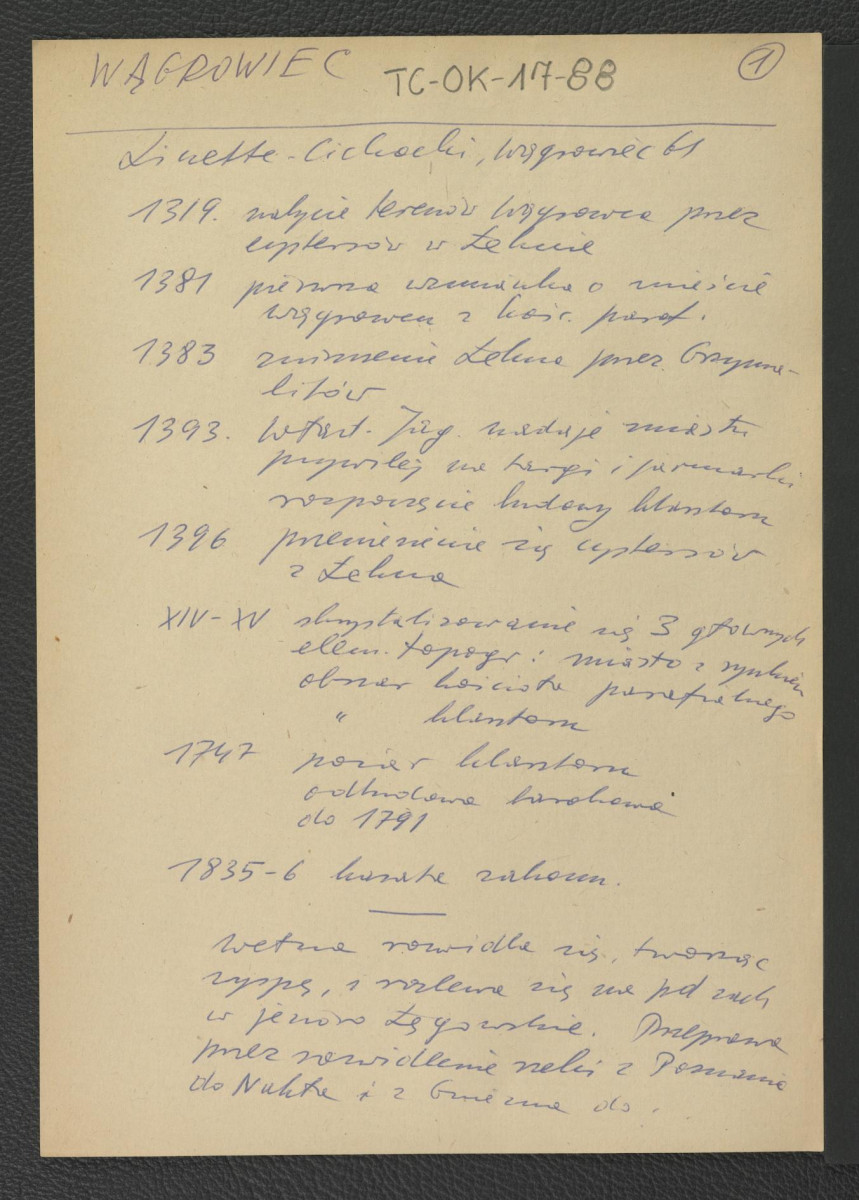 WĄGROWIEC TC-OK-17-88 1
Linette-Cichocki, Wągrowiec 61
1319. nabycie terenów Wągrowca przez
cystersów w Łeknie
1381 pierwsza wzmianka o mieście
Wągrowcu z kość. paraf.
1383 zniszczenie Łekna przez Grzyma-
litów
1393. Wład. Jag. nadaje miastu
przywilej na targi i jarmarki
rozpoczęcie budowy klasztoru
1396 przeniesienie się cystersów
z Łekna
XIV-XV skrystalizowanie się 3 głównych
elem. topogr: miasto z rynkiem
obszar kościoła parafialnego
" klasztoru
1747 pożar klasztoru
odbudowa barokowa
do 1791
1835-6 kasata zakonu.
Wełna rozwidla się, tworząc
wyspę, i rozlewa się na pd zach
w jezioro Łęgowskie. Przeprawa
przez rozwidlenie rzeki z Poznania
do Nakła i z Gniezna do.